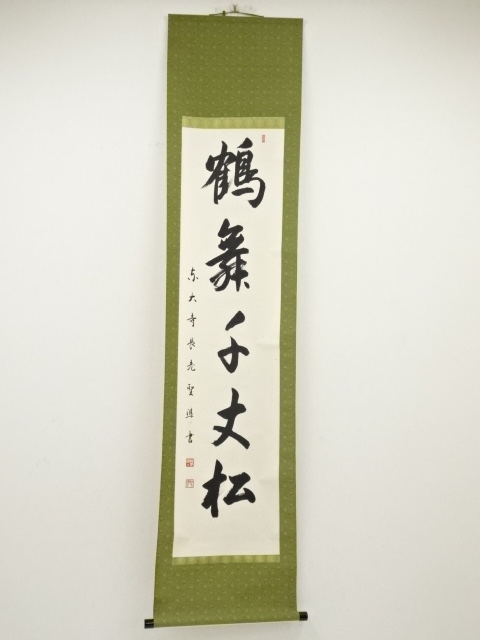 鶴舞千丈松
東大寺長老聖準書